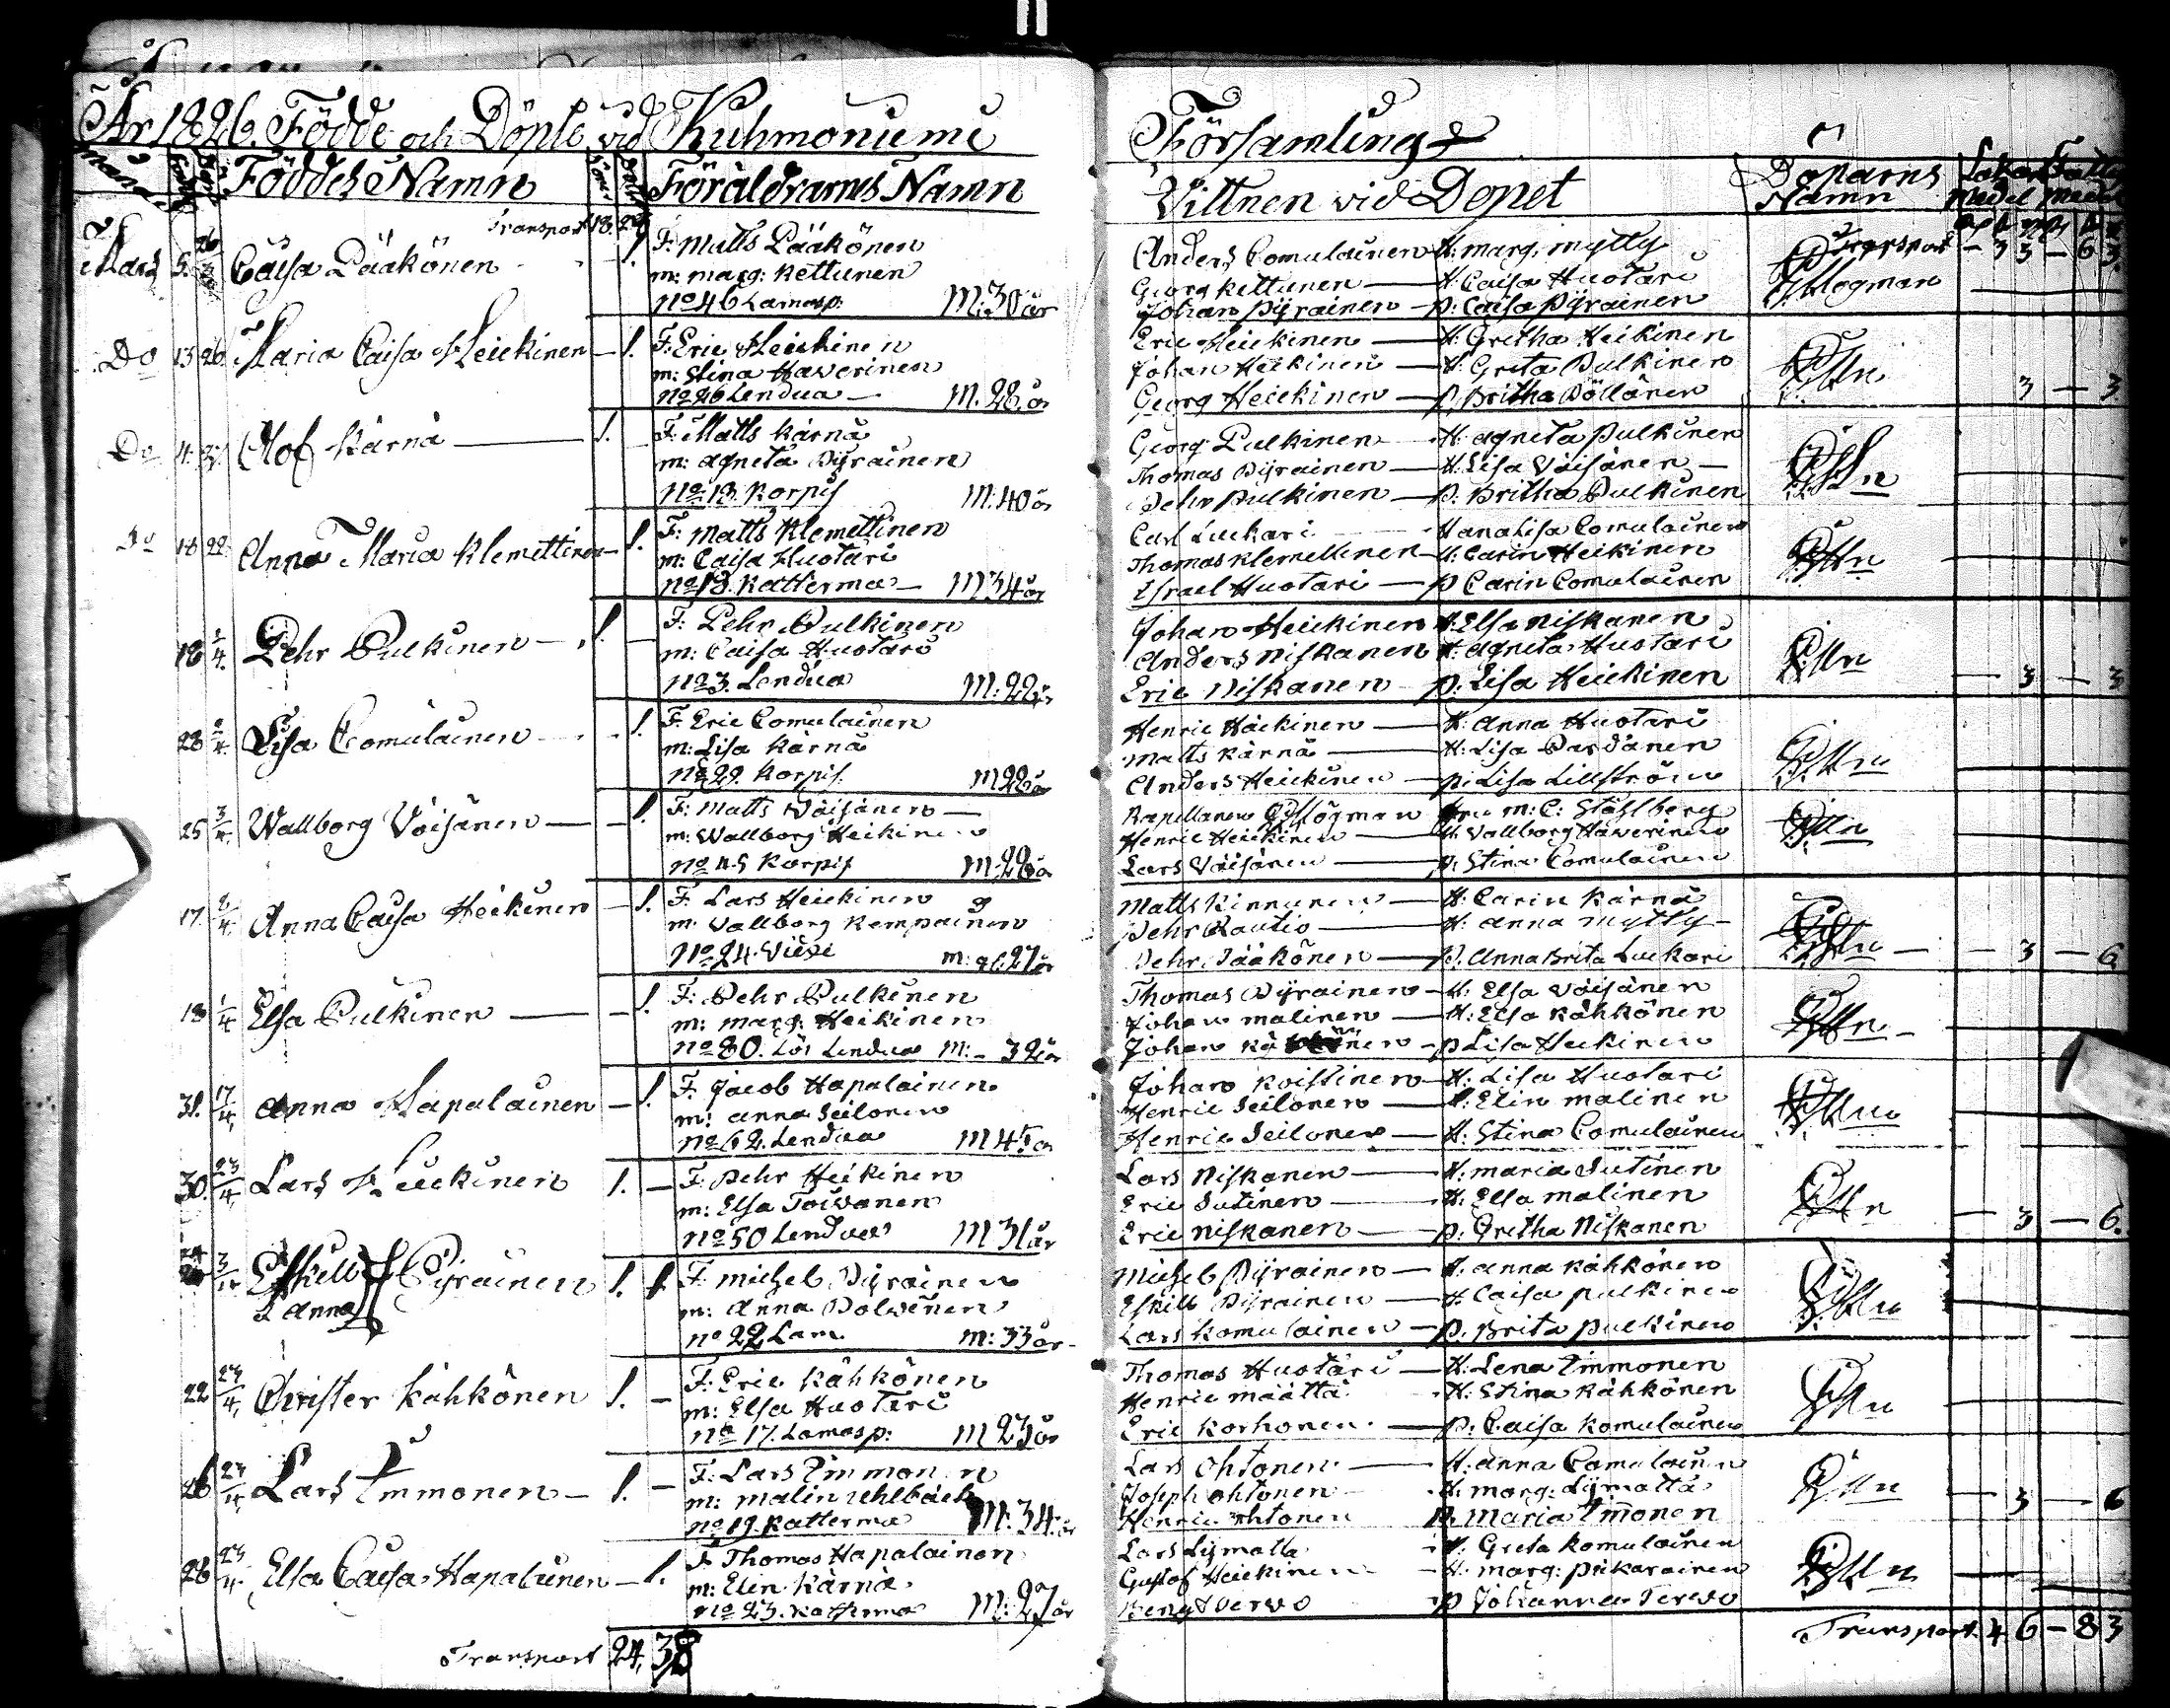 År 1826. Födde och Döpte vid Kuhmoniemi
Församling
Månad Födde Döpt Föddes Namn Föräldrarnes Namn
Vittnen vid Dopet Döparns Namn
Transport 18.
Mars 5. Caisa Pääkönen 1. F: Matts Pääkönen
m: marg: Kettunen
No 46 Lamasp: M: 30 år
Anders Comulainen H: marg: mylly Transport - 3 3 - 6 3.
Georg Kettunen H: Caisa Huotari
Johan Pyrainen p: Caisa Pyrainen
Do 13 26 Maria Caisa Heickinen 1. F: Eric Heickinen
m: Stina Haverinen
No 26 Lendua M. 28. år
Eric Heickinen H: Gretha Heikinen
Johan Heikinen H: Greta Pulkinen
Georg Heickinen p. Britha Pöllänen 3 - 3.
Do Olof Kärnä 1. F: Matts Kärnä
m: agneta Pyrainen
No 13. Korpis M: 40 år
Georg Pulkinen H: agneta Pulkinen
Thomas Pyrainen H: Lisa Väisänen
Pehr Pulkinen p: Britha Pulkinen
Do 18 22. Anna Maria Klemettinen 1. F: Matts Klemettinen
m: Caisa Huotari
No 13. Katterma M 34 år
Carl Luckari H analisa Comulainen
Thomas Klemettinen H: Carin Heikinen
Israel Huotari p Carin Comulainen
18 1/4. Pehr Pulkinen 1. F: Pehr Pulkinen
m: Caisa Huotari
No 3. Lendua M: 22 år
Johan Heickinen H: Elsa Niskanen
Anders Niskanen H: agneta Huotari
Eric Niskanen p: Lisa Heickinen 3 - 3
23 2/4. Lisa Comulainen 1. F: Eric Comulainen
m: Lisa Kärnä
No 29. Korpis. M 28 år
Henric Häckinen H: Anna Huotari
Matts Kärnä H: Lisa Pasdänen
Anders Heickinen p: Lisa Lillström
25 3/4. Wallborg Väisänen 1. F: Matts Väisänen
m: Wallborg Heikinen
No 45 Korpis M: 28 år
Kapellanen Högman fru M: C: Ståhlberg
Henric Heickinen H: Vallborg Haverinen
Lars Väisänen p. Stina Comulainen
17. 2/4. Anna Caisa Heikinen 1. F. Lars Heickinen
m: Vallborg Kempainen
No 24. Viexi m: 27 år
Matts Kinnunen H: Carin Kärnä
Pehr Rautio H: anna mylly
Pehr Pääkönen p. Anna Brita Luckari - 3 - 6
18 1/4 Elsa Pulkinen 1. F: Pehr Pulkinen
m: marg: Heikinen
No 80. Lös Lendua M: 32 år
Thomas Pyrainen H: Elsa Väisänen
Johan malinen H: Elsa Kähkönen
Johan p Lisa Heikinen
31. 17/4. Anna Hapalainen 1. F. Jacob Hapalainen
m: anna Seilonen
No 62. Lendua M 45 år
Johan Koistinen H: Lisa Huotari
Henric Seilonen H: Elin malinen
Henric Seilonen H: Stina Comulainen
30. 23/4. Lars Heickinen 1. F: Pehr Heikinen
m: Elsa Toivanen
No 50 Lendua M 31 år
Lars Niskanen H: maria Sutinen
Eric Sutinen H: Elsa malinen
Eric Niskanen p: Gretha Niskanen - 3 - 6.
24 3/4 Eskill & Anna Pyrainen 1. 1. F: Michel Pyrainen
m: Anna Polvinen
No 22 Lam. m: 33 år
Michel Pyrainen H: anna Kähkönen
Eskill Pyrainen H: Caisa pulkinen
Lars Komulainen p. Brita pulkinen
22 23/4. Christer Kähkönen 1. F: Eric Kähkönen
m: Elsa Huotari
No 17. Lamasp: M 23 år
Thomas Huotari H: Lena Immonen
Henric määttä H: Stina Kähkönen
Eric Korhonen p: Caisa Komulainen
26 23/4 Lars Immonen 1. F: Lars Immonen
m: malin Uhlbäck
No 19. Katterma M: 34. år
Lars Ohtonen H: anna Comulainen
Joseph Ohtonen H: marg: Lymatta
Henric Ohtonen p. Maria Immonen - 3 - 6
28 23/4. Elsa Caisa Hapalainen 1. F Thomas Hapalainen
m: Elin Kärnä
No 23. Katterma M: 27 år
Lars Lymatta H: Greta Komulainen
Gustof Heickinen H: marg: pikarainen
Bengt Tervo p Johanna Tervo
Transport 24, 38
Transport. 4 6 - 8 3